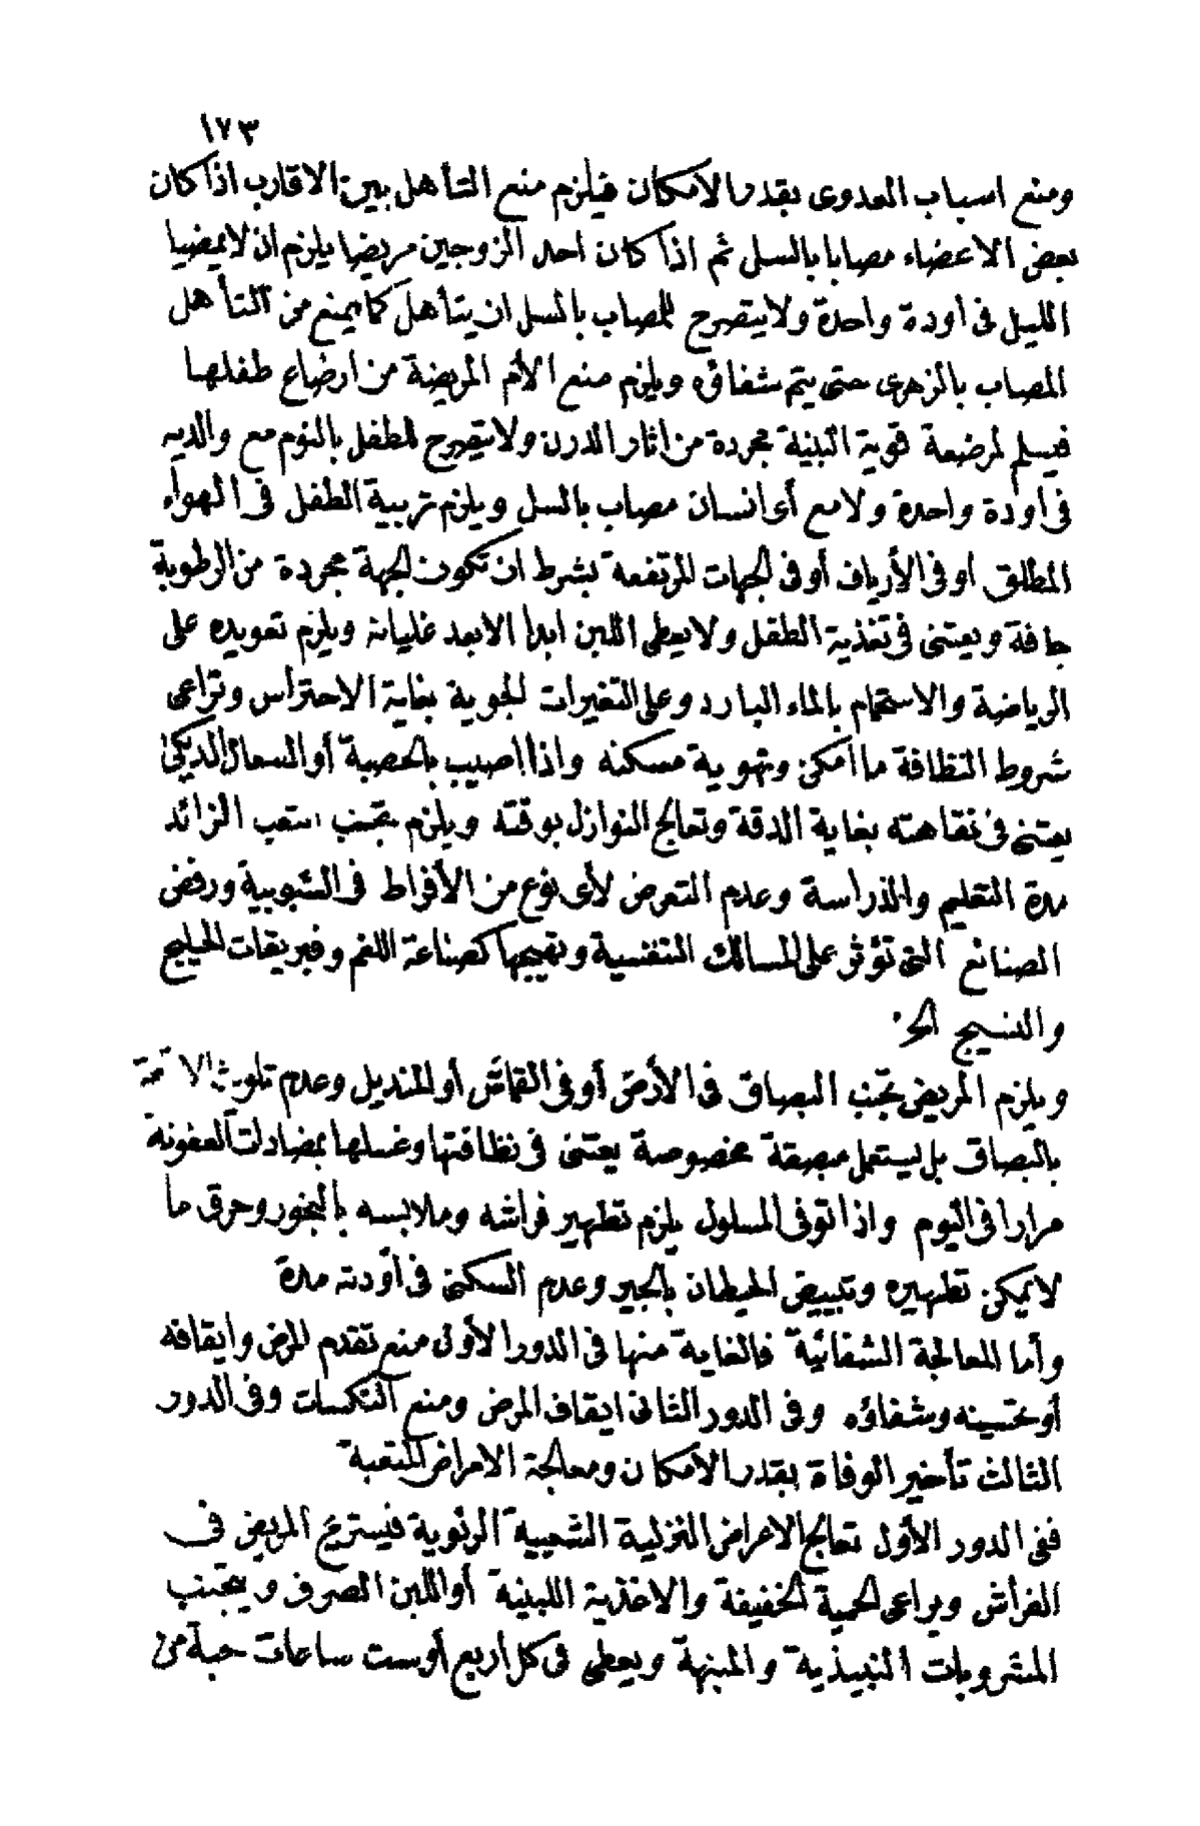 ١٧٣
ومنع اسباب العدوى بقدر الامكان فيلزم منع التأهل بين الاقارب اذا كان
بعض الاعضاء مصابا بالسل ثم اذا كان احد الزوجين مريضا يلزم ان لا يمضيا
الليل فى اودة واحدة ولا يتصرح للمصاب بالسل ان يتأهل كما يمنع من التأهل
المصاب بالزهرى حتى يتم شفاؤه ويلزم منع الأم المريضة من ارضاع طفلها
فيسلم لمرضعة قوية البنية مجردة من اثار الدرن ولا يتصرح للطفل بالنوم مع والديه
فى اودة واحدة ولا مع أى انسان مصاب بالسل ويلزم تربية الطفل فى الهواء
المطلق او فى الأرياف أو فى الجهات المرتفعة بشرط ان تكون الجهة مجردة من الرطوبة
جافة ويعتنى فى تغذية الطفل ولا يعطى اللبن ابدا الا بعد غليانه ويلزم تعويده على
الرياضة والاستحمام بالماء البارد وعلى التغيرات الجوية بغاية الاحتراس وتراعى
شروط النظافة ما امكن وتهوية مسكنه واذا اصيب بالحصبة أو السعال الديكى
يعتنى فى نقاهته بغاية الدقة وتعالج النوازل بوقته ويلزم تجنب التعب الزائد
مدة التعليم والدراسة وعدم التعرض لأى نوع من الأفراط فى الشبوبية ورفض
الصنائع التى تؤثر على المسالك التنفسية وتهيجها كصناعة اللغم وفبريقات الحليج
والنسيج الخ.
ويلزم المريض تجنب البصاق فى الأرض أو فى القماش أو المنديل وعدم تلويث الاقمشة
بالبصاق بل يستعمل مبصقة مخصوصة يعتنى فى نظافتها وغسلها بمضادات العفونة
مرارا فى اليوم واذا توفى المسلول يلزم تطهير فراشه وملابسه بالبخور وحرق ما
لا يمكن تطهيره وتبييض الحيطان بالجير وعدم السكنى فى اودته مدة
وأما المعالجة الشفائية فالغاية منها فى الدور الأولى منع تقدم المرض وايقافه
أو تحسينه وشفاؤه وفى الدور الثانى ايقاف المرض ومنع النكسات وفى الدور
الثالث تأخير الوفاة بقدر الامكان ومعالجة الامراض المتعبة
ففى الدور الأول تعالج الاعراض النزلية الشعبية الرئوية فيستريح المريض فى
الفراش ويراعى الحمية الخفيفة والاغذية اللبنية أو اللبن الصرف ويتجنب
المشروبات النبيذية والمنبهة ويعطى فى كل اربع أو ست ساعات حبة من